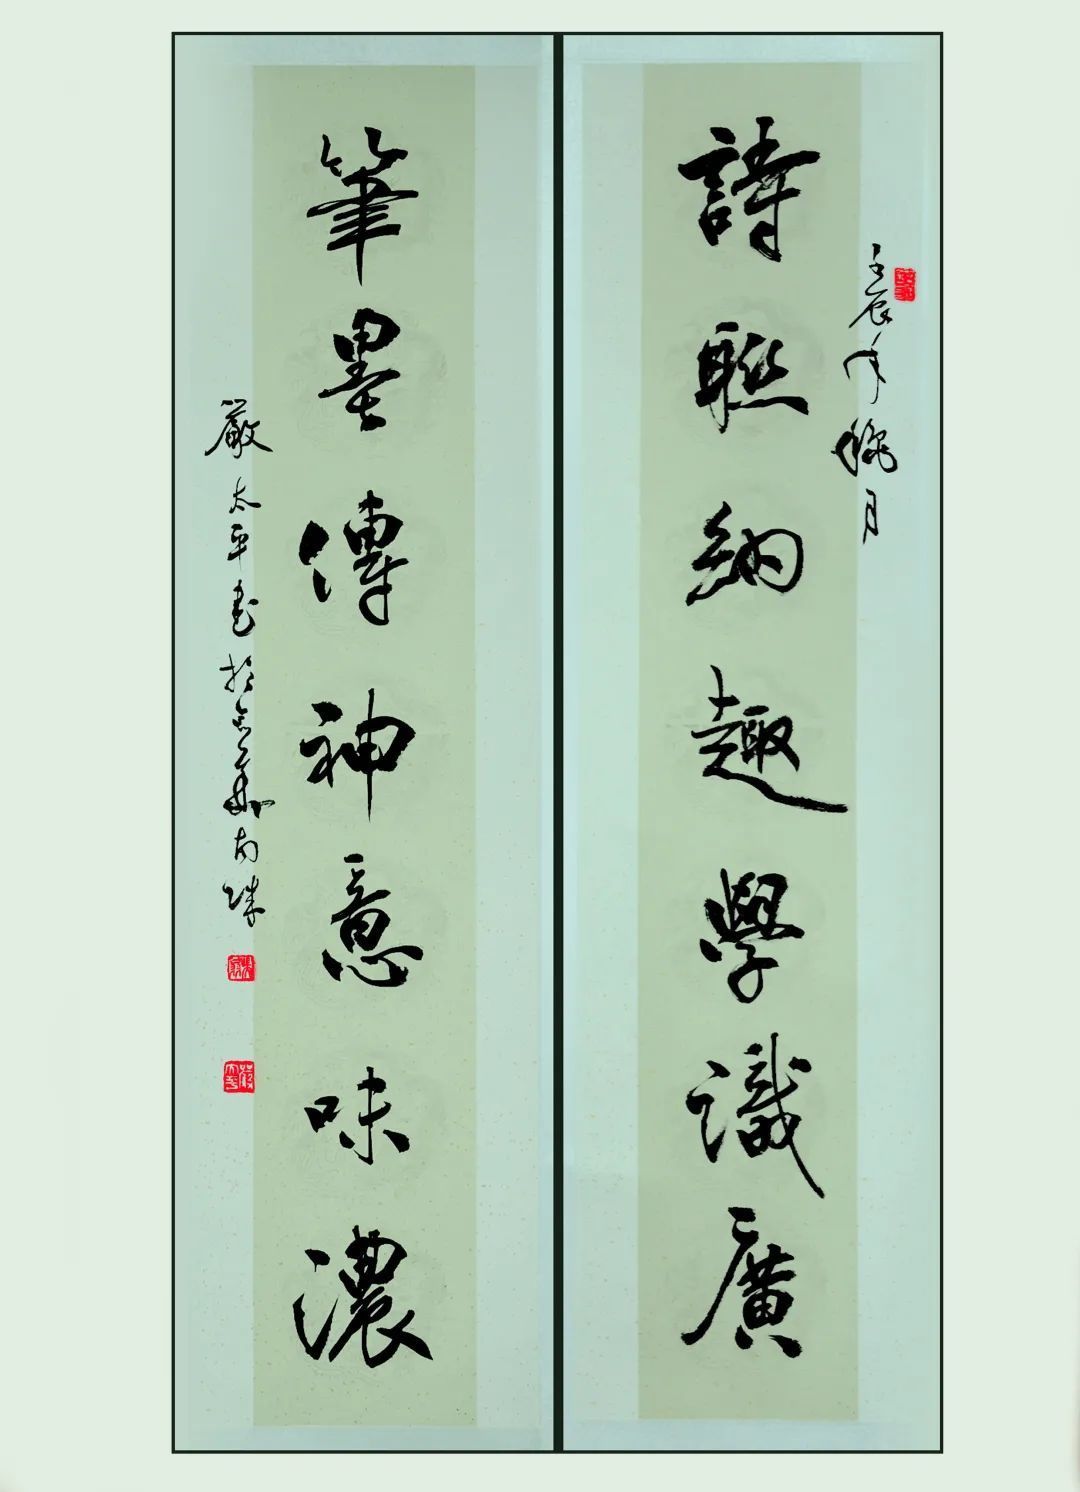 詩聯納趣學識廣
壬辰年 月
筆墨傳神意味濃
嚴太平書於 南